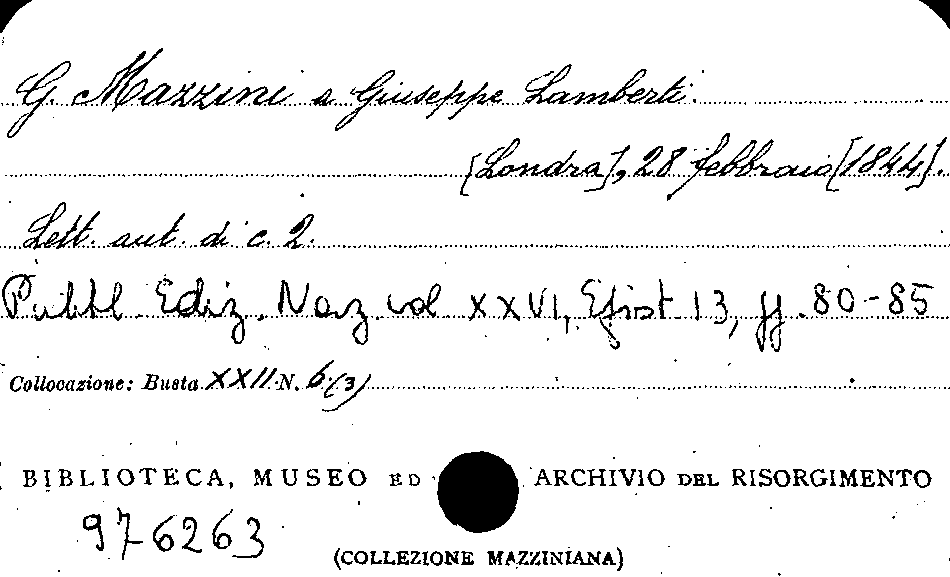 G. Mazzini a Giuseppe Lamberti.
[Londra], 28 febbraio [1844].
Lett. aut. di c. 2.
Pubbl. Ediz. Naz. vol XXVI, Epist. 13, pp. 80-85
Collocazione: Busta XXII N. 6.(3)
BIBLIOTECA, MUSEO ED ARCHIVIO DEL RISORGIMENTO
976263
(COLLEZIONE MAZZINIANA)